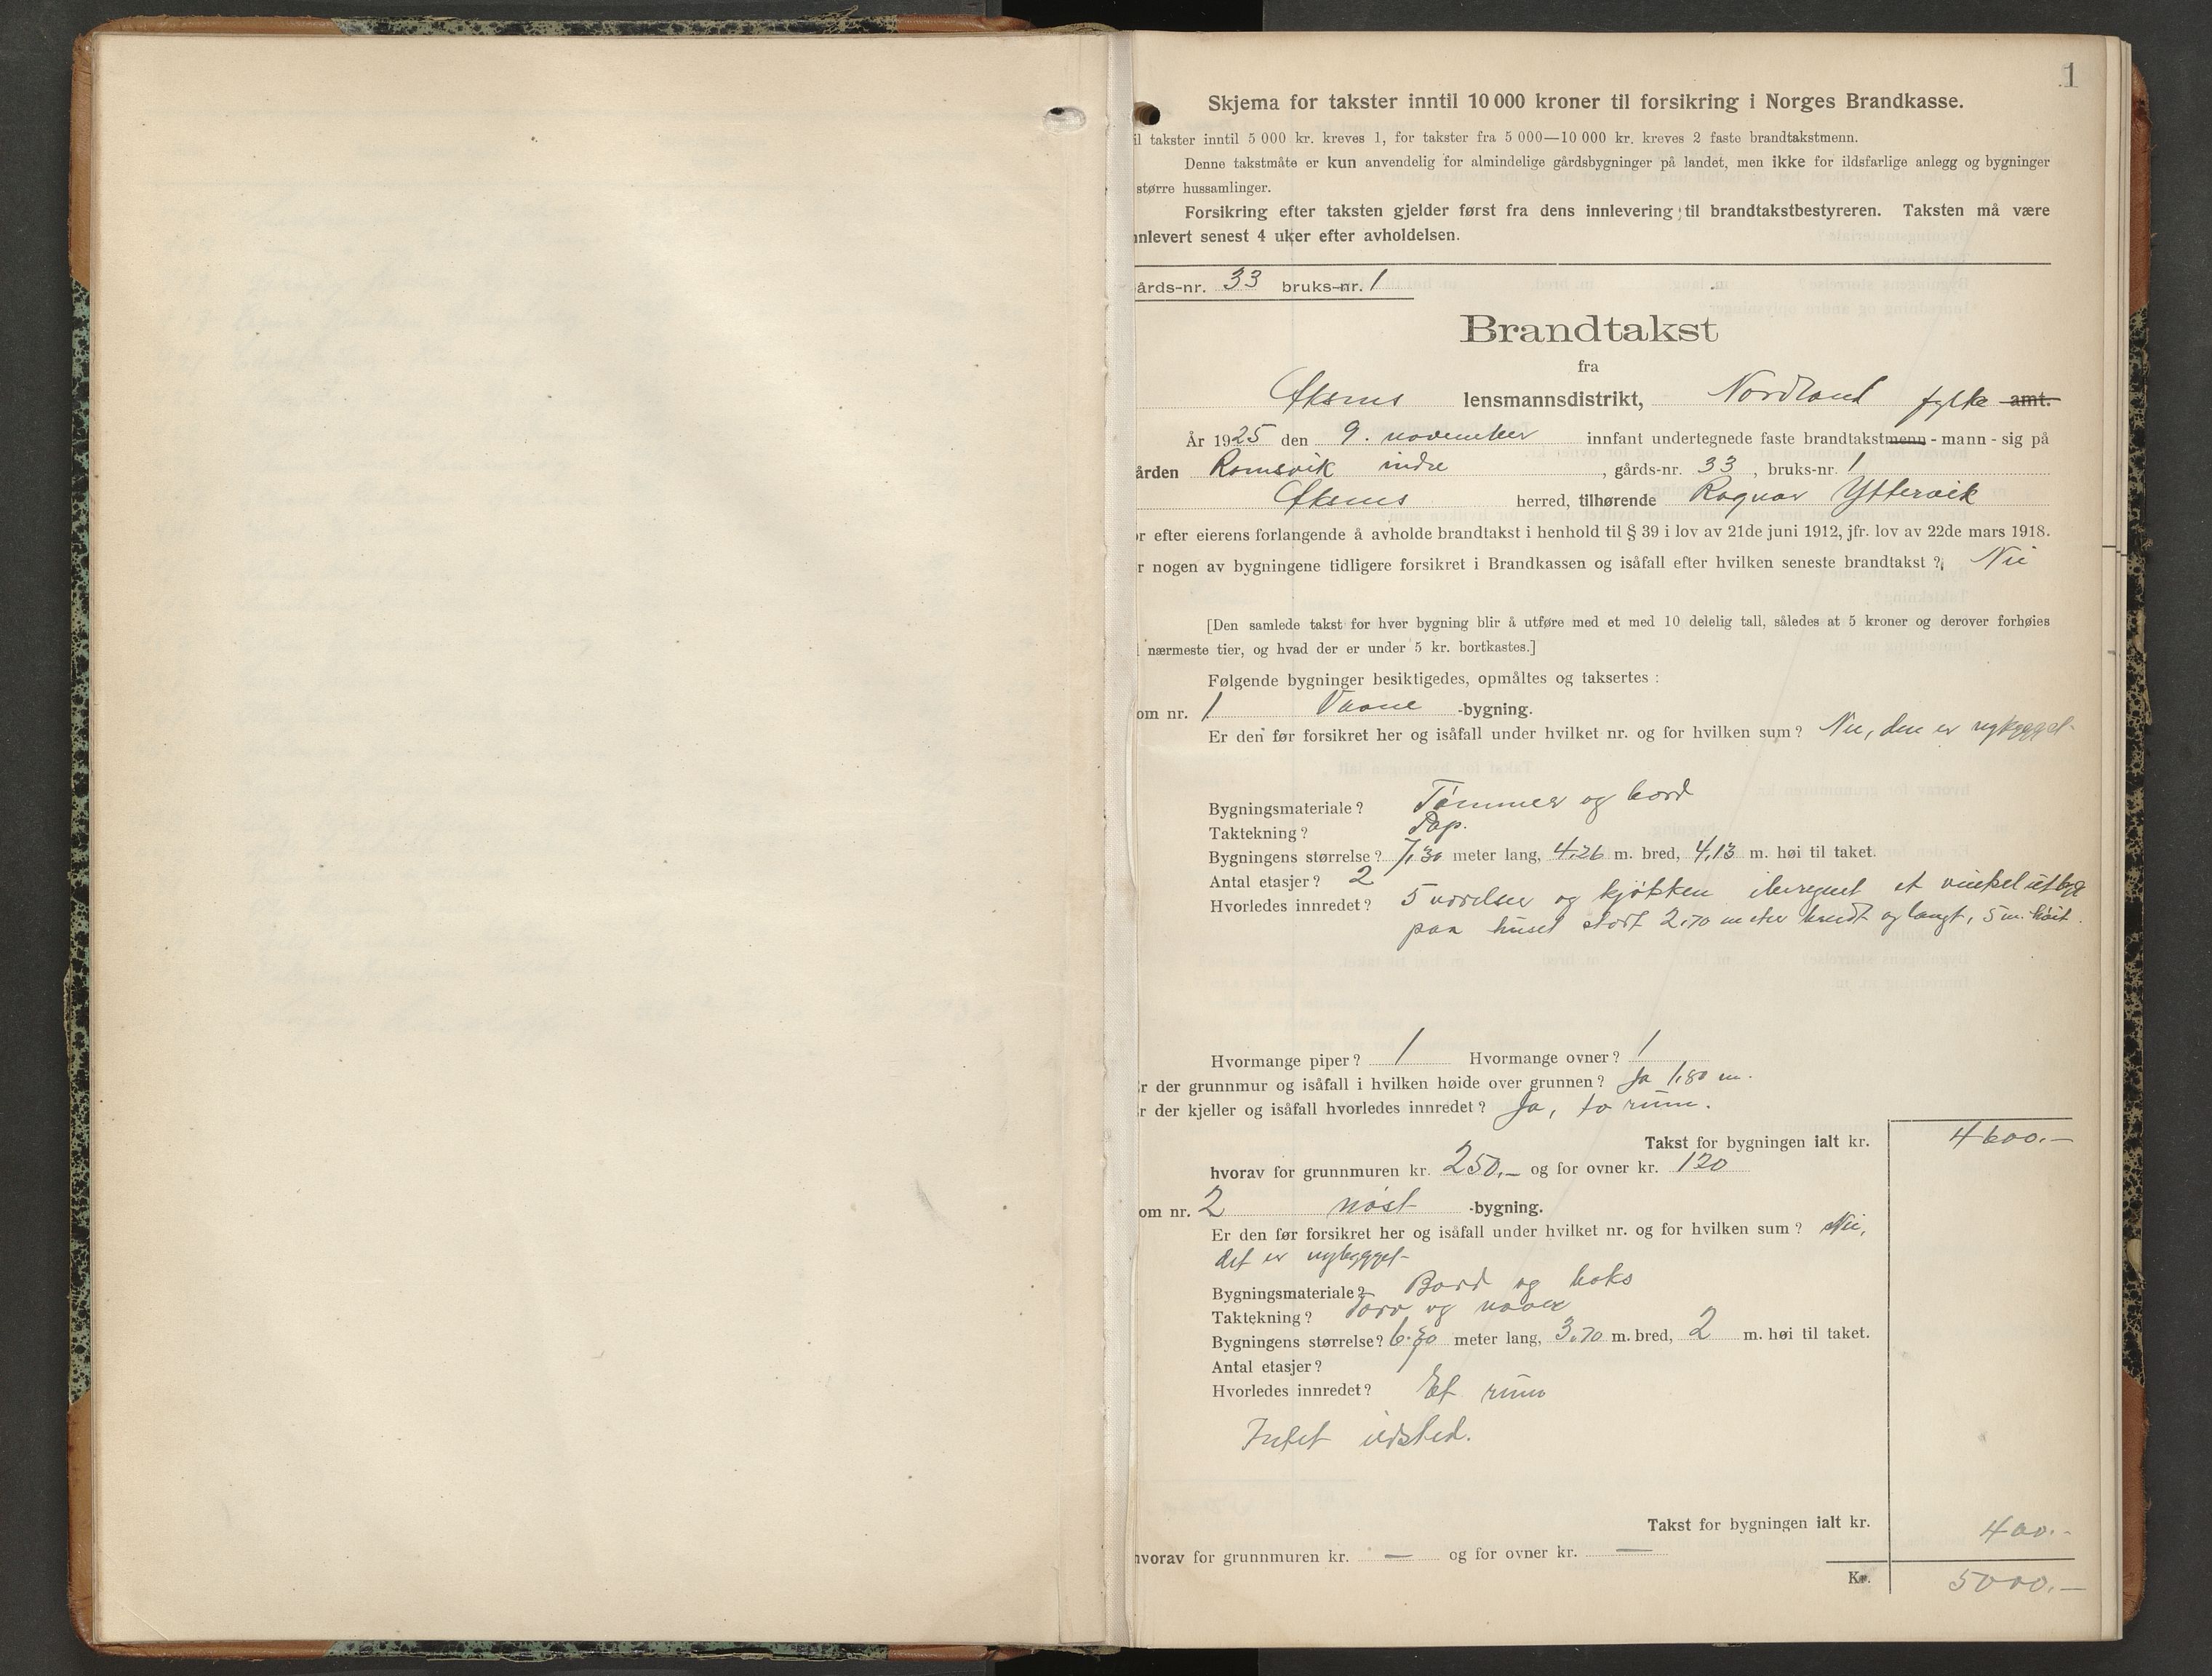 1
Skjema for takster inntil 10 000 kroner til forsikring i Norges Brandkasse.
il takster inntil 5 000 kr. kreves 1, for takster fra 5 000—10 000 kr. kreves 2 faste brandtakstmenn.
Denne takstmåte er kun anvendelig for almindelige gårdsbygninger på landet, men ikke for ildsfarlige anlegg og bygninger
større hussamlinger.
Forsikring efter taksten gjelder først fra dens innlevering til brandtakstbestyreren. Taksten må være
nnlevert senest 4 uker efter avholdelsen.
årds-nr. 33 bruks-nr. 1
Brandtakst
fra
lensmannsdistrikt, Nordland fylke amt.
År 1925 den 9. november innfant undertegnede faste brandtakstmenn - mann - sig på
ården Ramsvik indre, gårds-nr. 33, bruks-nr. 1
herred, tilhørende Ragnar Yttervik
or efter eierens forlangende å avholde brandtakst i henhold til § 39 i lov av 21de juni 1912, jfr. lov av 22de mars 1918.
r nogen av bygningene tidligere forsikret i Brandkassen og isåfall efter hvilken seneste brandtakst? Nei
[Den samlede takst for hver bygning blir å utføre med et med 10 delelig tall, således at 5 kroner og derover forhøies
l nærmeste tier, og hvad der er under 5 kr. bortkastes.]
Følgende bygninger besiktigedes, opmåltes og taksertes :
om nr. 1 Vaane -bygning.
Er den før forsikret her og isåfall under hvilket nr. og for hvilken sum? Nei, den er nybygget
Bygningsmateriale? Tømmer og bord
Taktekning? Pap.
Bygningens størrelse? 7,30 meter lang, 4.26 m. bred, 4,13 m. høi til taket.
Antal etasjer? 2
Hvorledes innredet? 5 værelser og kjøkken iberegnet et vinkelutbyg
paa huset stort 2,70 meter bredt og langt, 5 m. høit.
Hvormange piper? 1 Hvormange ovner? 1
r der grunnmur og isåfall i hvilken høide over grunnen? Ja 1,80 m.
r der kjeller og isåfall hvorledes innredet? Ja, to rum.
Takst for bygningen ialt kr. 4600.—
hvorav for grunnmuren kr. 250.— og for ovner kr. 120
om nr. 2 nøst -bygning.
Er den før forsikret her og isåfall under hvilket nr. og for hvilken sum? Nei,
det er nybygget
Bygningsmateriale? Bord og
Taktekning? Torv og næver
Bygningens størrelse? meter lang, 3,70 m. bred, 2 m. høi til taket.
Antal etasjer?
Hvorledes innredet? Et rum
Intet ildsted.
Takst for bygningen ialt kr. 400.-
hvorav for grunnmuren kr. — og for ovner kr. —
Kr. 5000.—